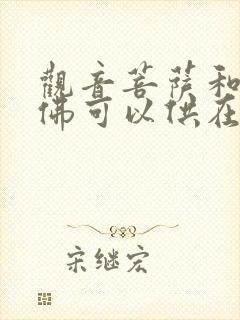 觀音菩薩和
佛可以供在
宋继宏